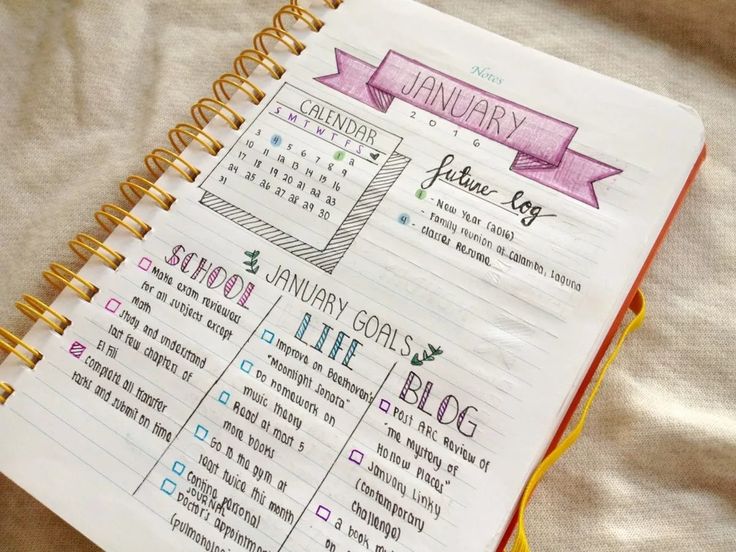 Notes
JANUARY
2016
CALENDAR
S M T W T F S
1 2
3 4 5 6 7 8 9
10 11 12 13 14 15 16
17 18 19 20 21 22 23
24 25 26 27 28 29 30
31
future log
1 - New Year (2016)
- Family reunion at Calamba, Laguna
4 - Classes Resume
JANUARY GOALS
SCHOOL
Make exam reviewers
for all subjects except
math
Study and understand
last few chapters of
El Fili
Complete all transfer
tasks and submit on time
LIFE
Improve on Beethoven's
"Moonlight Sonata"
Do homework on
music theory
Read at most 5
more books
Go to the gym at
least twice this month
personal
JOURNAL
Doctor's appointment
BLOG
Post ARC Review of
"The Mystery of
Hollow Places"
January Linky
(Contemporary
Challenge)
a book